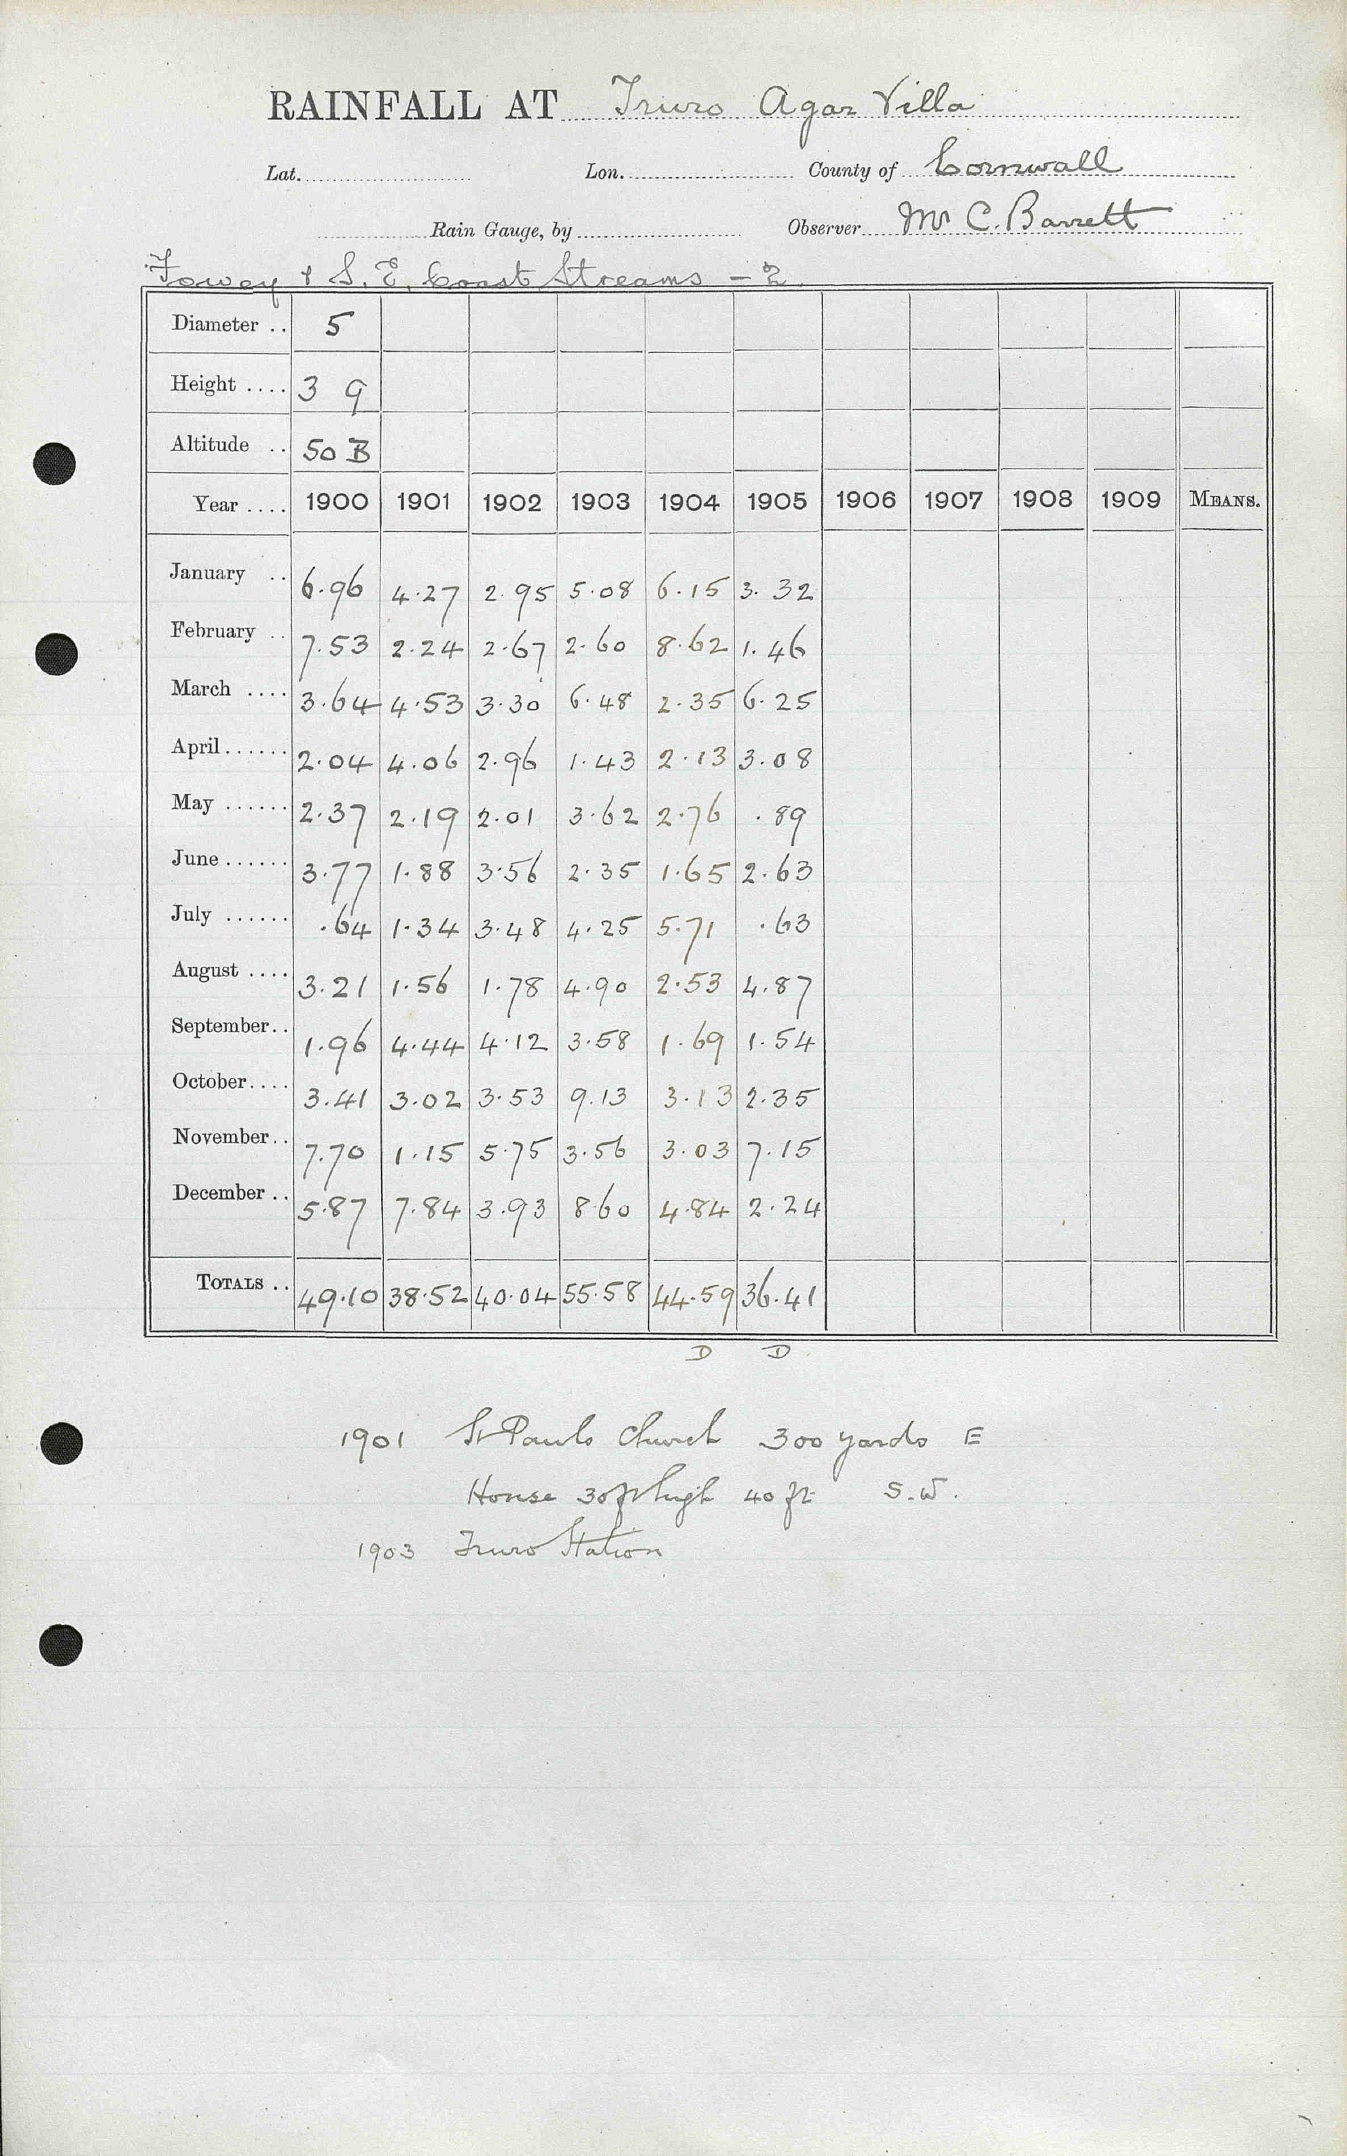 RAINFALL AT Truro Agar Villa
Lat. Lon. County of Cornwall
Rain Gauge, by Observer Mr C. Barrett
Fowey & S. E. Coast Streams - 2
Diameter .. 5
Height .... 3 9
Altitude .. 50 B
Year .... 1900 1901 1902 1903 1904 1905 1906 1907 1908 1909 MEANS.
January .. 6.96 4.27 2.95 5.08 6.15 3.32
February .. 7.53 2.24 2.67 2.60 8.62 1.46
March .... 3.64 4.53 3.30 6.48 2.35 6.25
April...... 2.04 4.06 2.96 1.43 2.13 3.08
May ...... 2.37 2.19 2.01 3.62 2.76 .89
June...... 3.77 1.88 3.56 2.35 1.65 2.63
July ...... .64 1.34 3.48 4.25 5.71 .63
August .... 3.21 1.56 1.78 4.90 2.53 4.87
September.. 1.96 4.44 4.12 3.58 1.69 1.54
October.... 3.41 3.02 3.53 9.13 3.13 2.35
November.. 7.70 1.15 5.75 3.56 3.03 7.15
December .. 5.87 7.84 3.93 8.60 4.84 2.24
TOTALS .. 49.10 38.52 40.04 55.58 44.59 36.41
D D
1901 St Pauls Church 300 yards E
House 30ft high 40 ft S.W.
1903 Truro Station